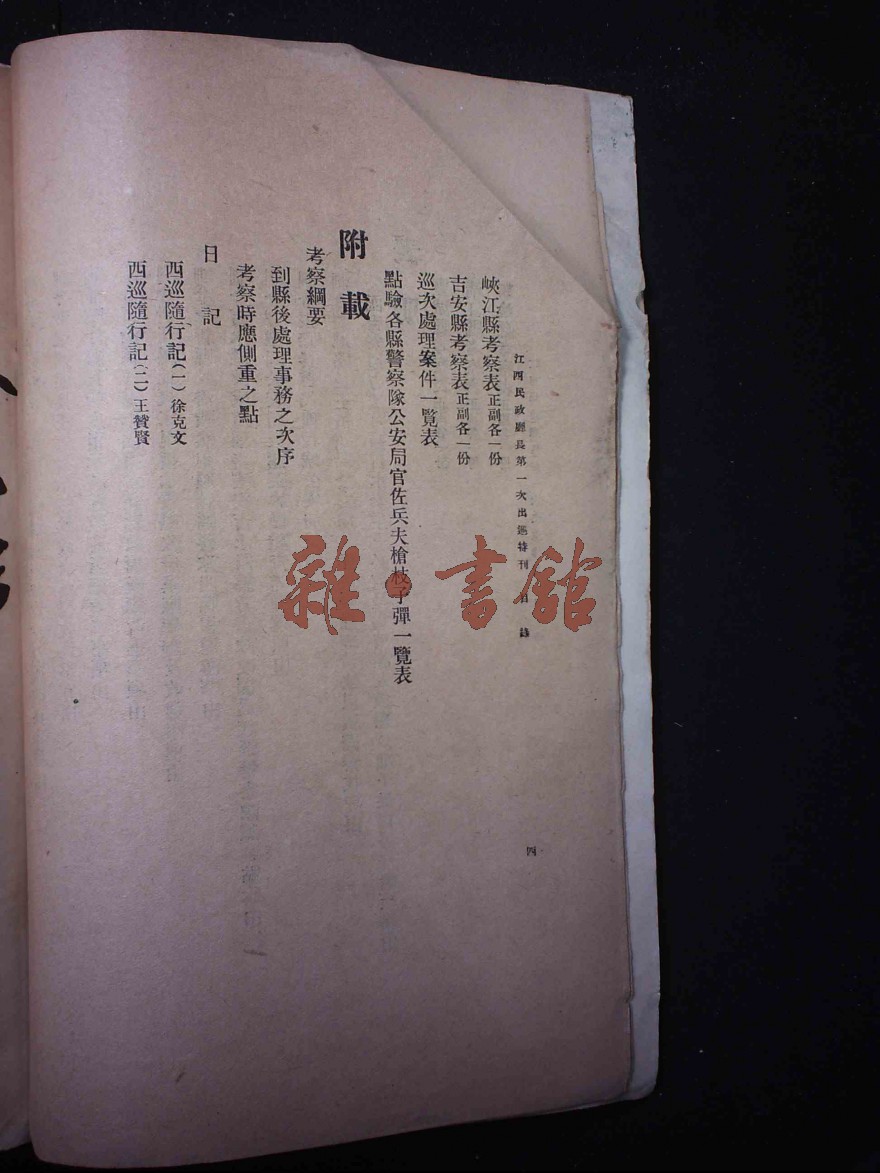 江西民政廳長第一次出巡特刊 目錄
四
峽江縣考察表正副各一份
吉安縣考察表正副各一份
巡次處理案件一覽表
點驗各縣警察隊公安局官佐兵夫槍枝子彈一覽表
附載
考察綱要
到縣後處理事務之次序
考察時應側重之點
日記
西巡隨行記(一)徐克文
西巡隨行記(二)王贊賢
雜·書館